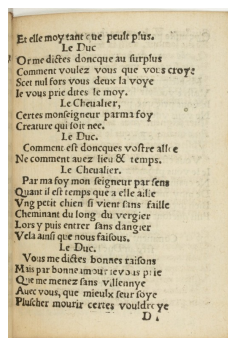 Et elle moy tant que peult plus.
Le Duc
Or me dictes doncque au surplus
Comment voulez vous que vous croye
Scet nul fors vous deux la voye
Ie vous prie dittes le moy.
Le Chevalier,
Certes monseigneur par ma foy
Creature qui soit nee.
Le Duc.
Comment est doncques vostre allee
Ne comment auez lieu & temps.
Le Cheualier.
Par ma foy mon seigneur par sens
Quant il est temps que a elle aille
Vng petit chien si vient sans faille
Cheminant du long du vergier
Lors y puis entrer sans dangier
Vela ainsi que nous faisous.
Le Duc.
Vous me dictes bonnes raisons
Mais par bonne amour ie vous prie
Que me menez sans villennye
Auec vous, que mieulx seur soye
Pluscher mourir certes vouldroye
D